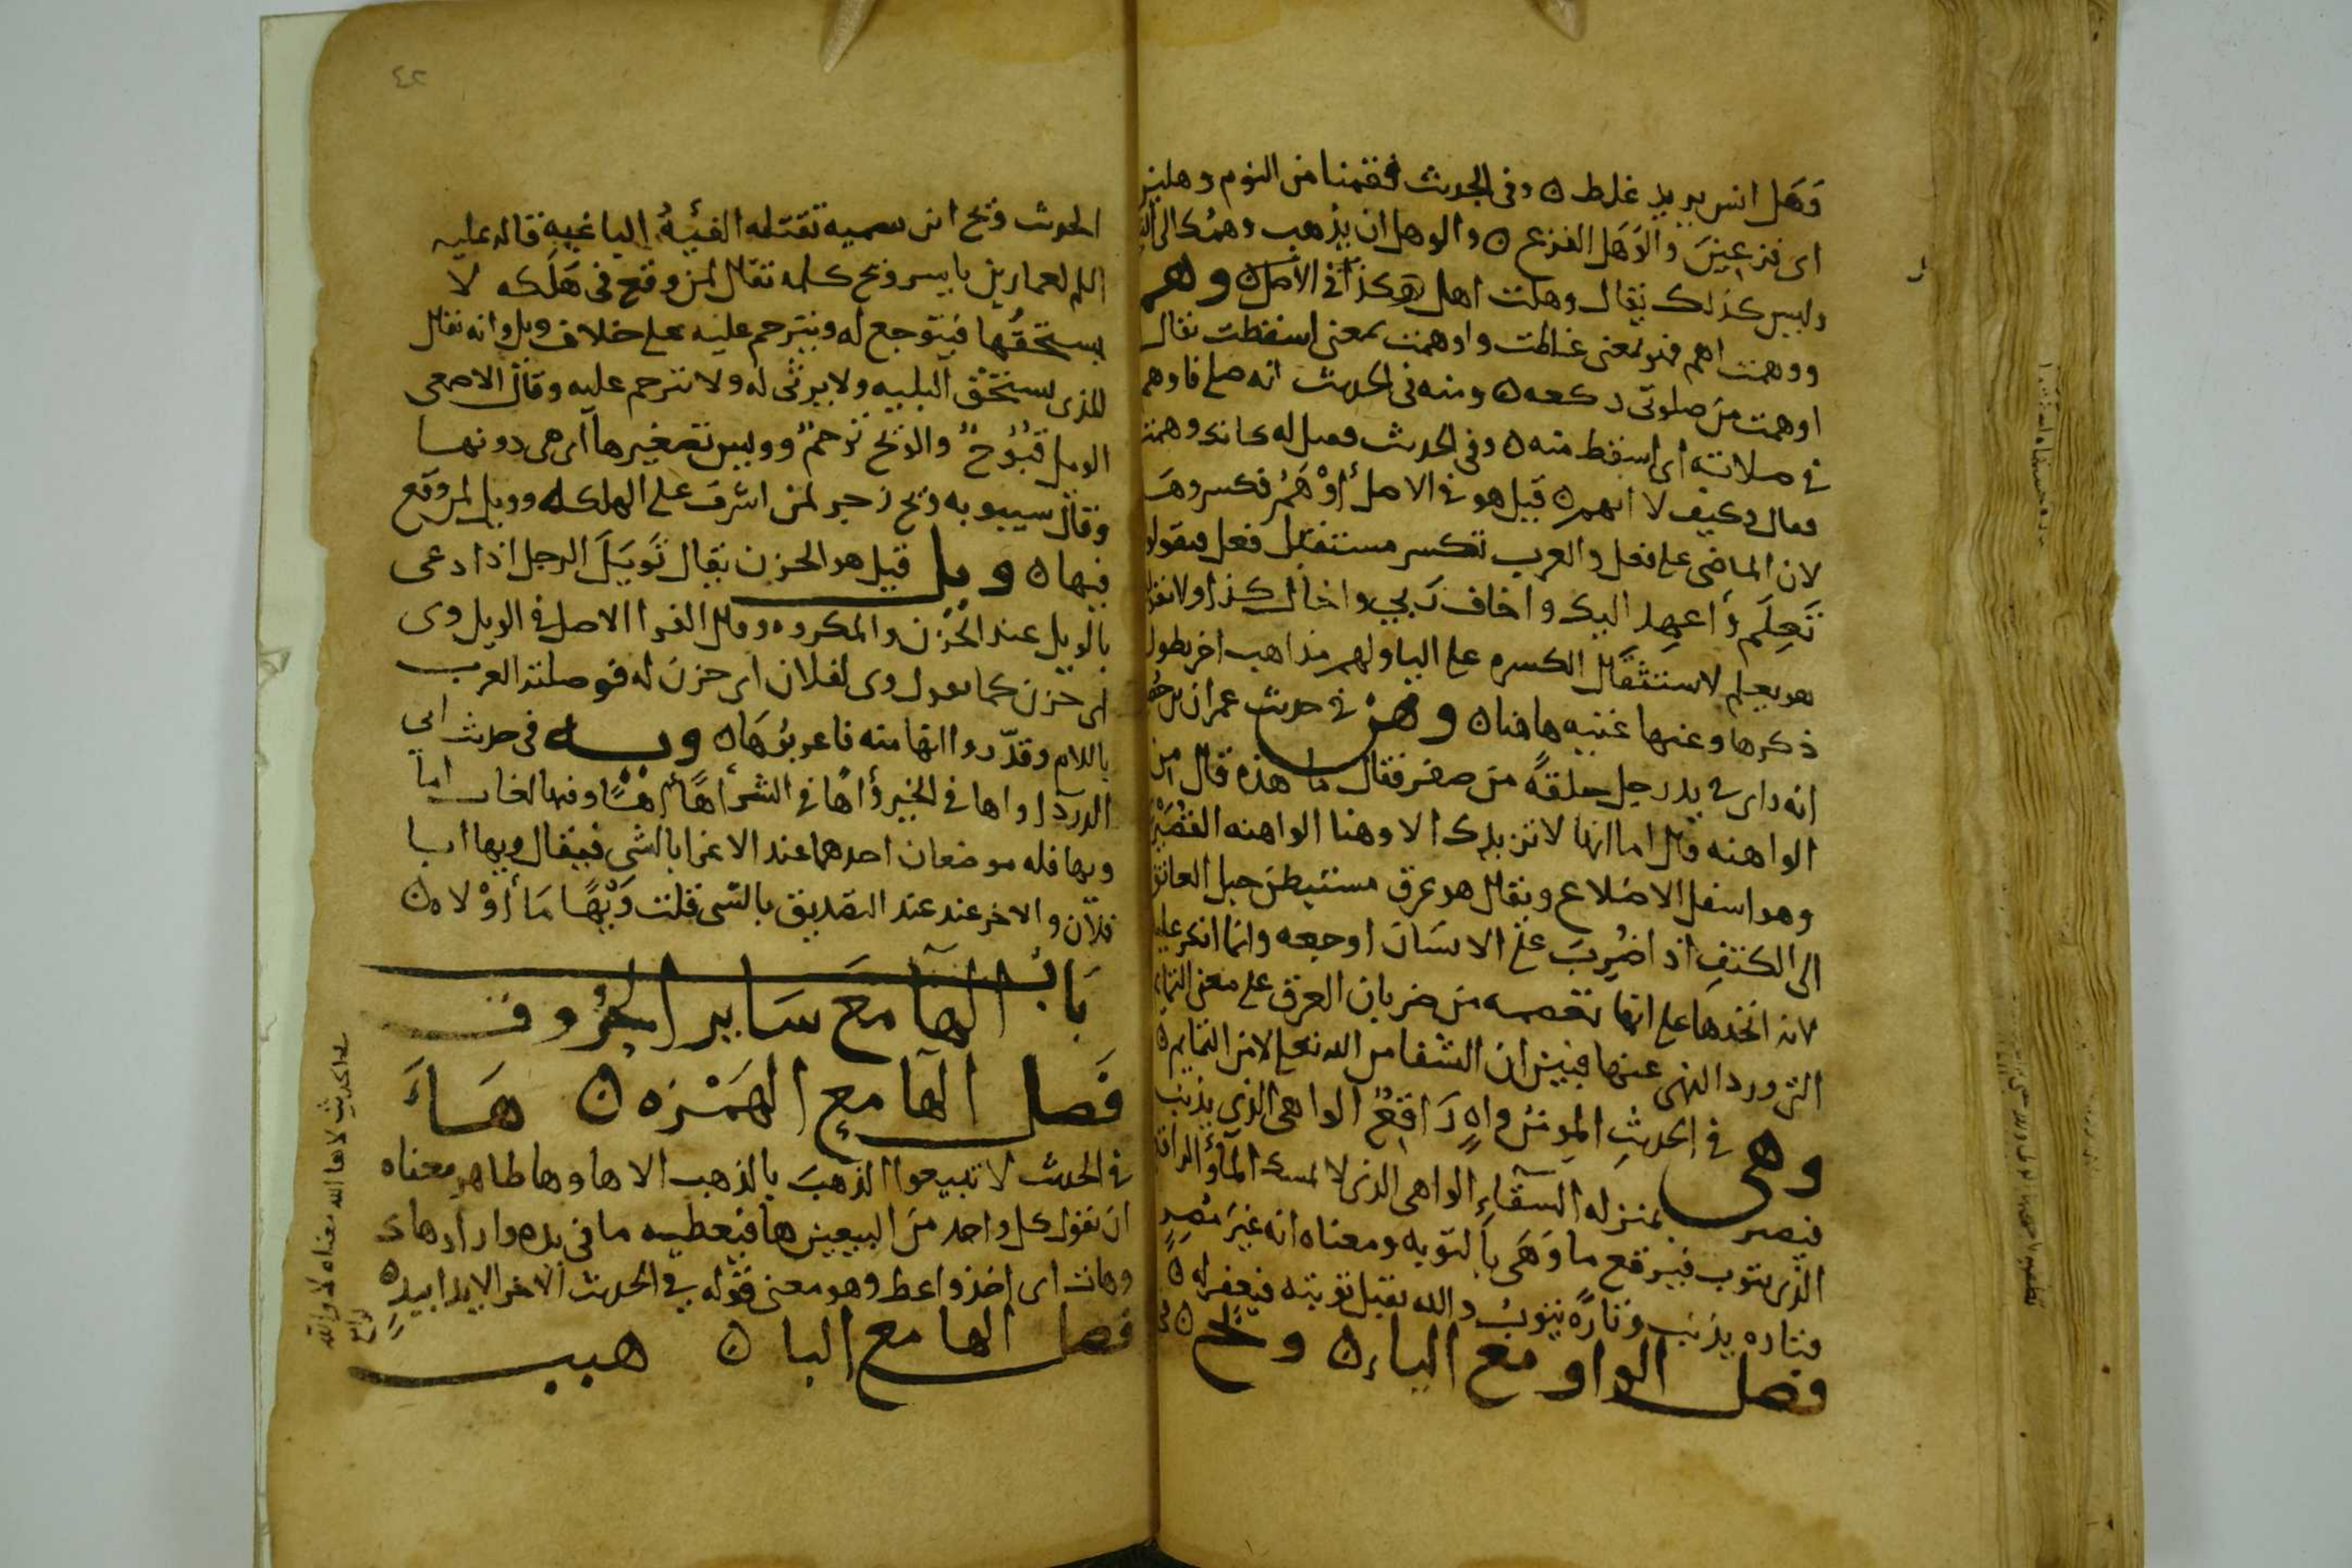 وَهَل انس يريد غلط ن وفى الحديث فقمنا من النوم وهلين
اى فزعينَ والوَهَل الفزع ن والوهل ان يذهب وهمُك الى
وليس كذلك يقال وهلت اهل هكذا فى الأصل ن وهم
ووهمت اهم فهو بمعنى غلطت واوهمت بمعنى اسقطت يقال
اوهمت من صلوتى ركعه ن ومنه فى الحديث انه صلى فاوهم
فى صلاته أى اسقط منه ن وفى الحديث قيل له كانك وهمت
فقال وكيف لا ايهم ن قيل هو فى الاصل أوْهَمُ فكسروهَ
لان الماضى على فعل والعرب تكسر مستقبل فعل فيقولو
تَعِلَم وأعهد اليك واخاف ربى واخال كذا ولا تقول
هو يعلم لاستثقال الكسره على اليا ولهم مذاهب اخر يطول
ذكرها وعنها غنيه هاهنا ن وهن فى حديث عمران بن حُصَ
انه راى فى يد رجل حلقةً من صفر فقال ما هذه قال من
الواهنه قال اما انها لا تزيدك الا وهنا الواهنه القُصَيْرَ
وهو اسفل الاضلاع ويقال هو عرق مستبطن حبل العاتق
الى الكتفِ اذا ضُرِبَ على الانسَانَ اوجعه وانما انكر عليه
لانه اتخذها على انها تعصمه من ضربان العرق على معنى التمايم
التى ورد النهى عنها فبين ان الشفا من الله تعلى لا من التمايم ن
وهى فى الحديثِ المومنُ واهٍ رَاقِعٌ الواهى الذى يذنب
فيصير بمنزله السقآءِ الواهى الذى لا يمسك المآءَ والراقع
الذى يتوب فيرقع ما وَهَى بالتوبه ومعناه انه غيرَ مُصِرٍ
فتاره يذنب وتارةً يتوبُ والله يقبل توبته فيغفر له ن
فصل الواو مع الياء ن ويح ن فى
٤٢
الحديث ويح ابن سميه تقتله الفئيةُ الباغيه قاله عليه
السلم لعمار بن ياسر ويح كلمه تقال لمن وقع فى هَلَكه لا
يستحقُها فيتوجع له ويترحم عليه على خلاف ويل وانه يقال
للذى يستحق البليه ولا يرثى له ولا يترحم عليه وقال الاصمعى
الويل قبُوحٌ والويح ترحمٌ وويس تصغيرها اى هى دونها
وقال سيبويه ويح زجر لمن اشرف على الهلكه وويل لمن وقع
فيها ن ويل قيل هو الحزن يقال تَوَيَلَ الرجل اذا دعى
بالويل عند الحُزن والمكروه وقال الفرا الاصل فى الويل وى
اى حزن كما تقول وى لفلان اى حزنَ له فوصلته العرب
باللام وقدّروا انها منه فاعربُوهَا ن ويه فى حديث ابى
الدردا واها فى الخير وأهًا فى الشر أهًا أهًا وفيها لغات اما
ويها فله موضعان احدهما عند الاغرا بالشى فيقال ويها ابا
فلان والاخر عند عند التصديق بالشى قلت وَيْهًا مَا أوْلاه ن
بَابُ الهآ مَع سَاير الحُرُوف
فَصل الهآ مع الهَمْزه ن هَاءَ
فى الحديث لا تبيعوا الذهبَ بالذهب الا ها وها ظاهر معناه
ان يقول كل واحد من البيعين ها فيعطيه ما فى يده واراد هاك
وهات اى اخذ واعط وهو معنى قوله فى الحديث الاخر الا يدا بيدٍ ن
فصل الها مع البا ن هبب
فى الحديث لاها الله معناه لا والله